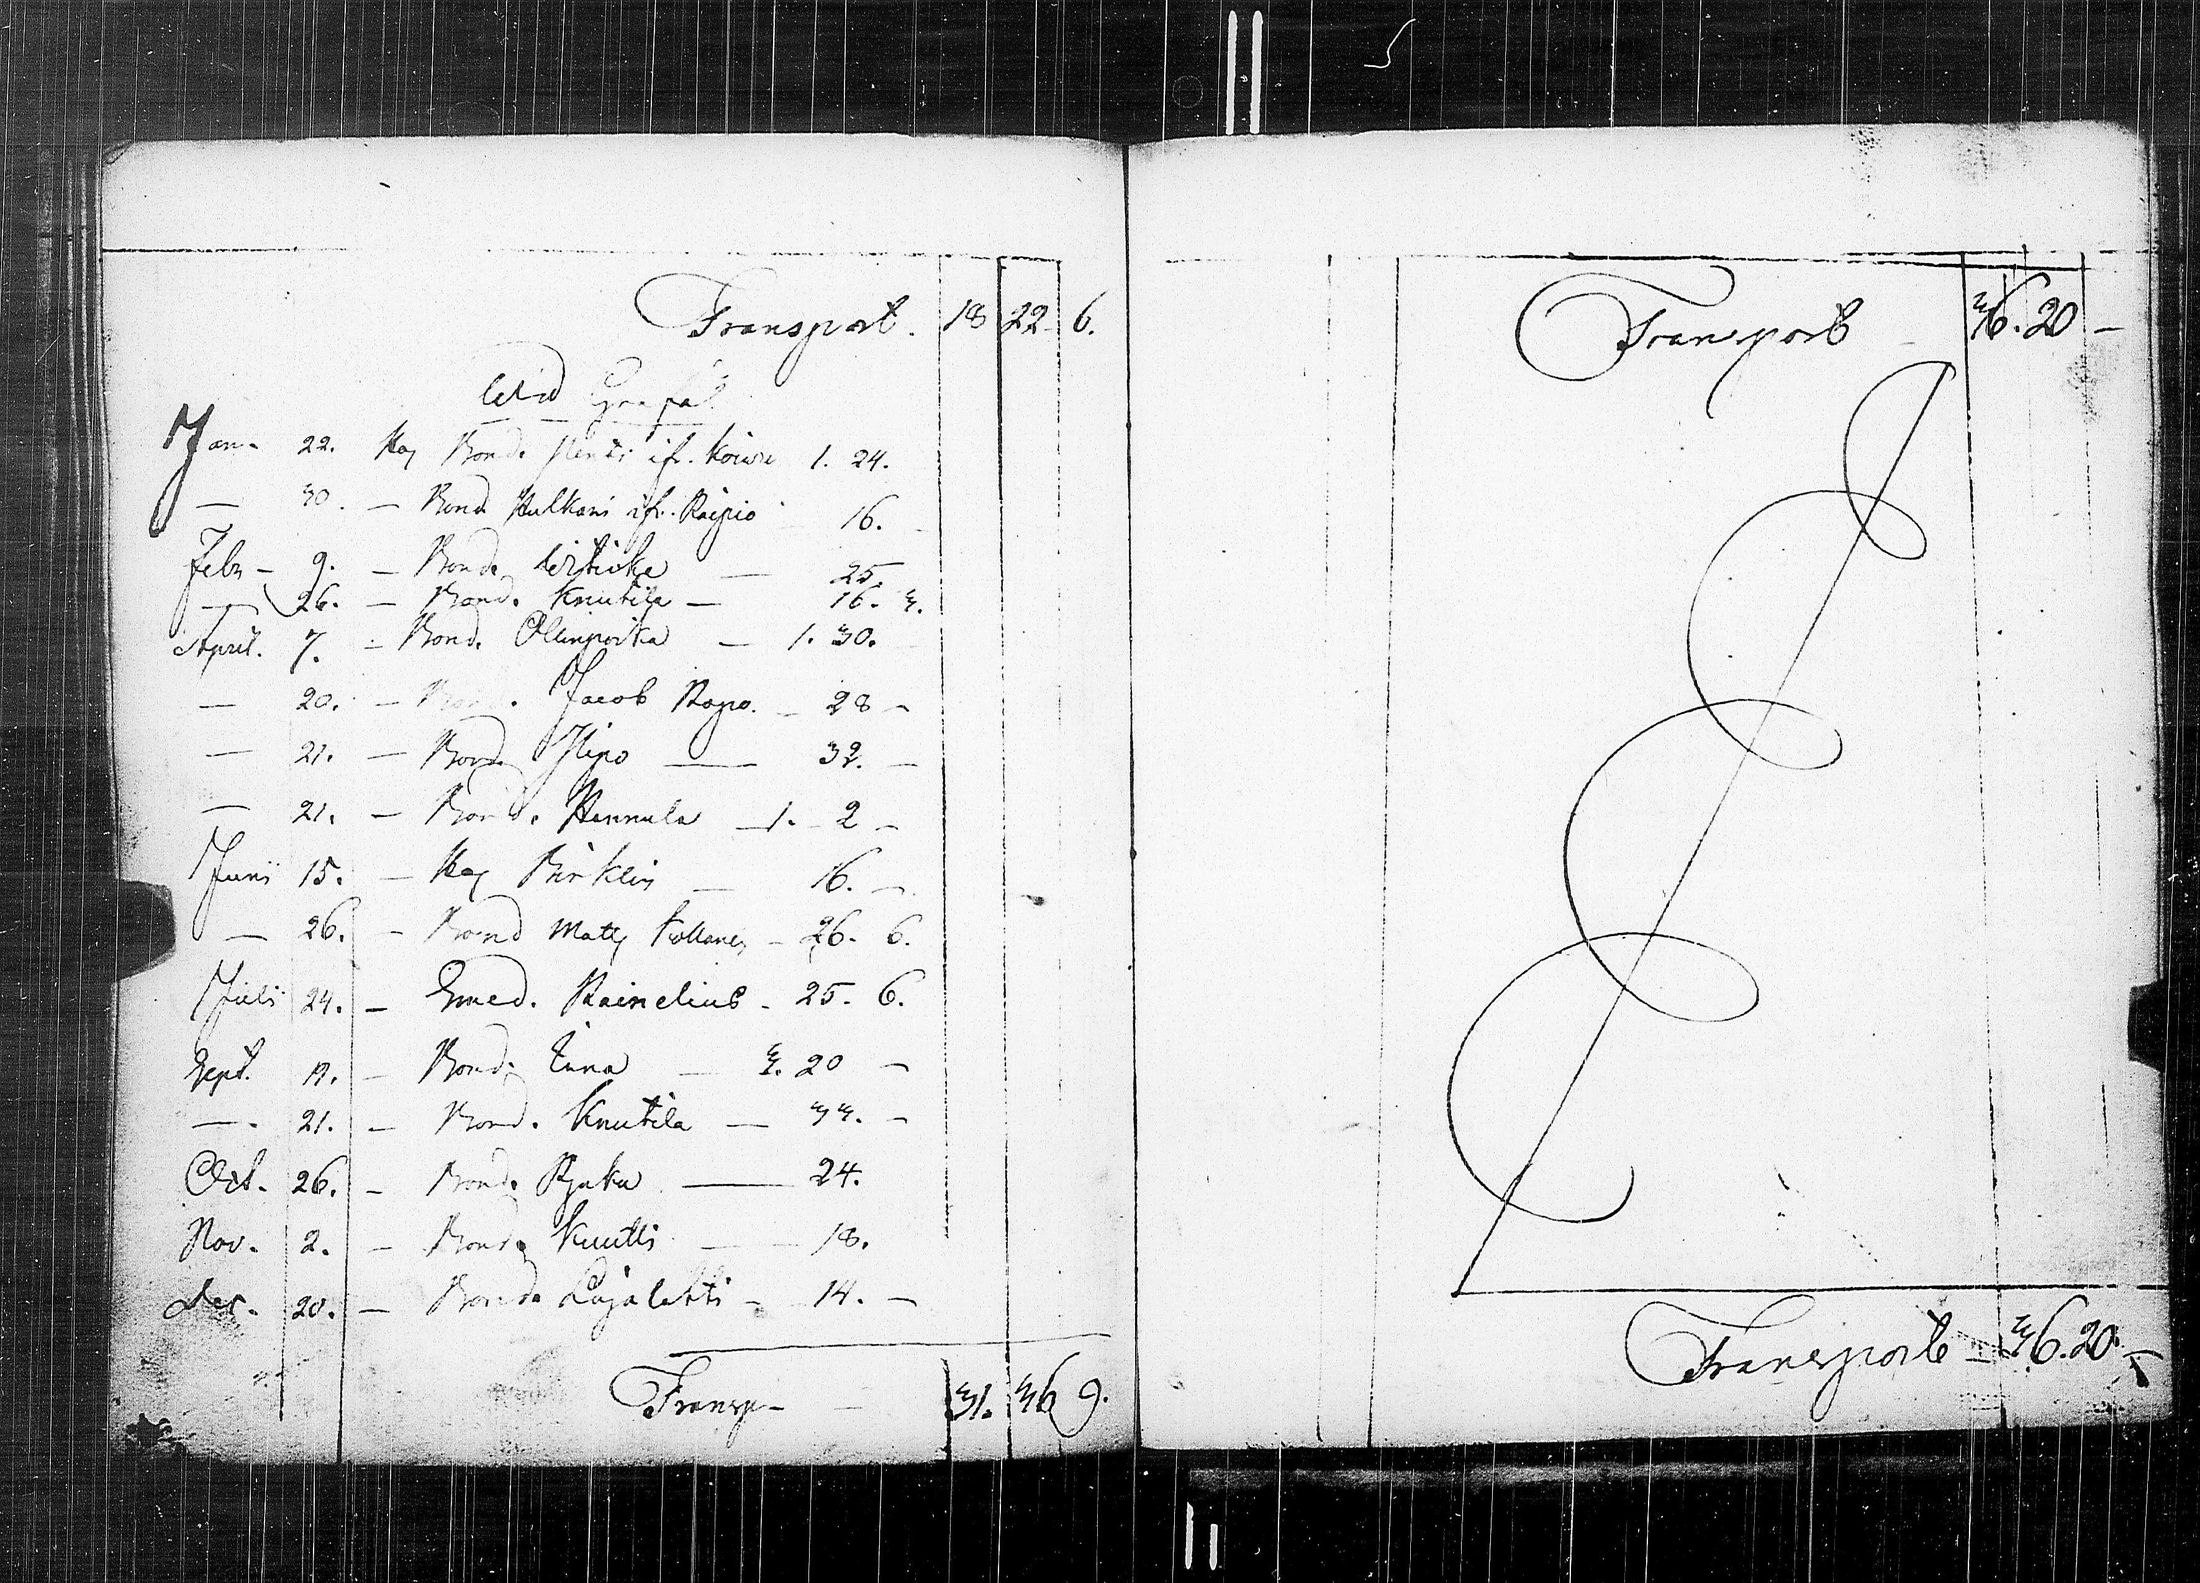 Transport. 18 22 6.
Wid Graf
Jan. 22. Haj Bond. Henti ifr. Koiwu 1. 24.
— 30. — Bond. Hulkani ifr. Raipio 16.
Febr — 9. — Bond. — 25.
— 26. — Bond. Knutila — 16. 3.
April. 7. — Bond. Ollenpoika — 1. 30.
— 20. — Bond. Jacob Rapo. — 28 —
— 21. — Bond. Ilipo — 32. —
— 21. — Bond. Hannula — 1. — 2 —
Junii 15. — Haj Birklin — 16. —
— 26. — Bond Matts — 26. 6.
Julii 24. — Smed. Rainelius — 25. 6.
Sept. 19. — Bond. — 3. 20 —
— 21. — Bond. Knutila — 33. —
Oct. 26. — Bond. — 24.
Nov. 2. — Bond. Knutti — 18.
Dec. 20. — Bond. Lajalahti — 14. —
Transp — 31. 36 9.
Transport — 36. 20 —
Transport — 36. 20. —